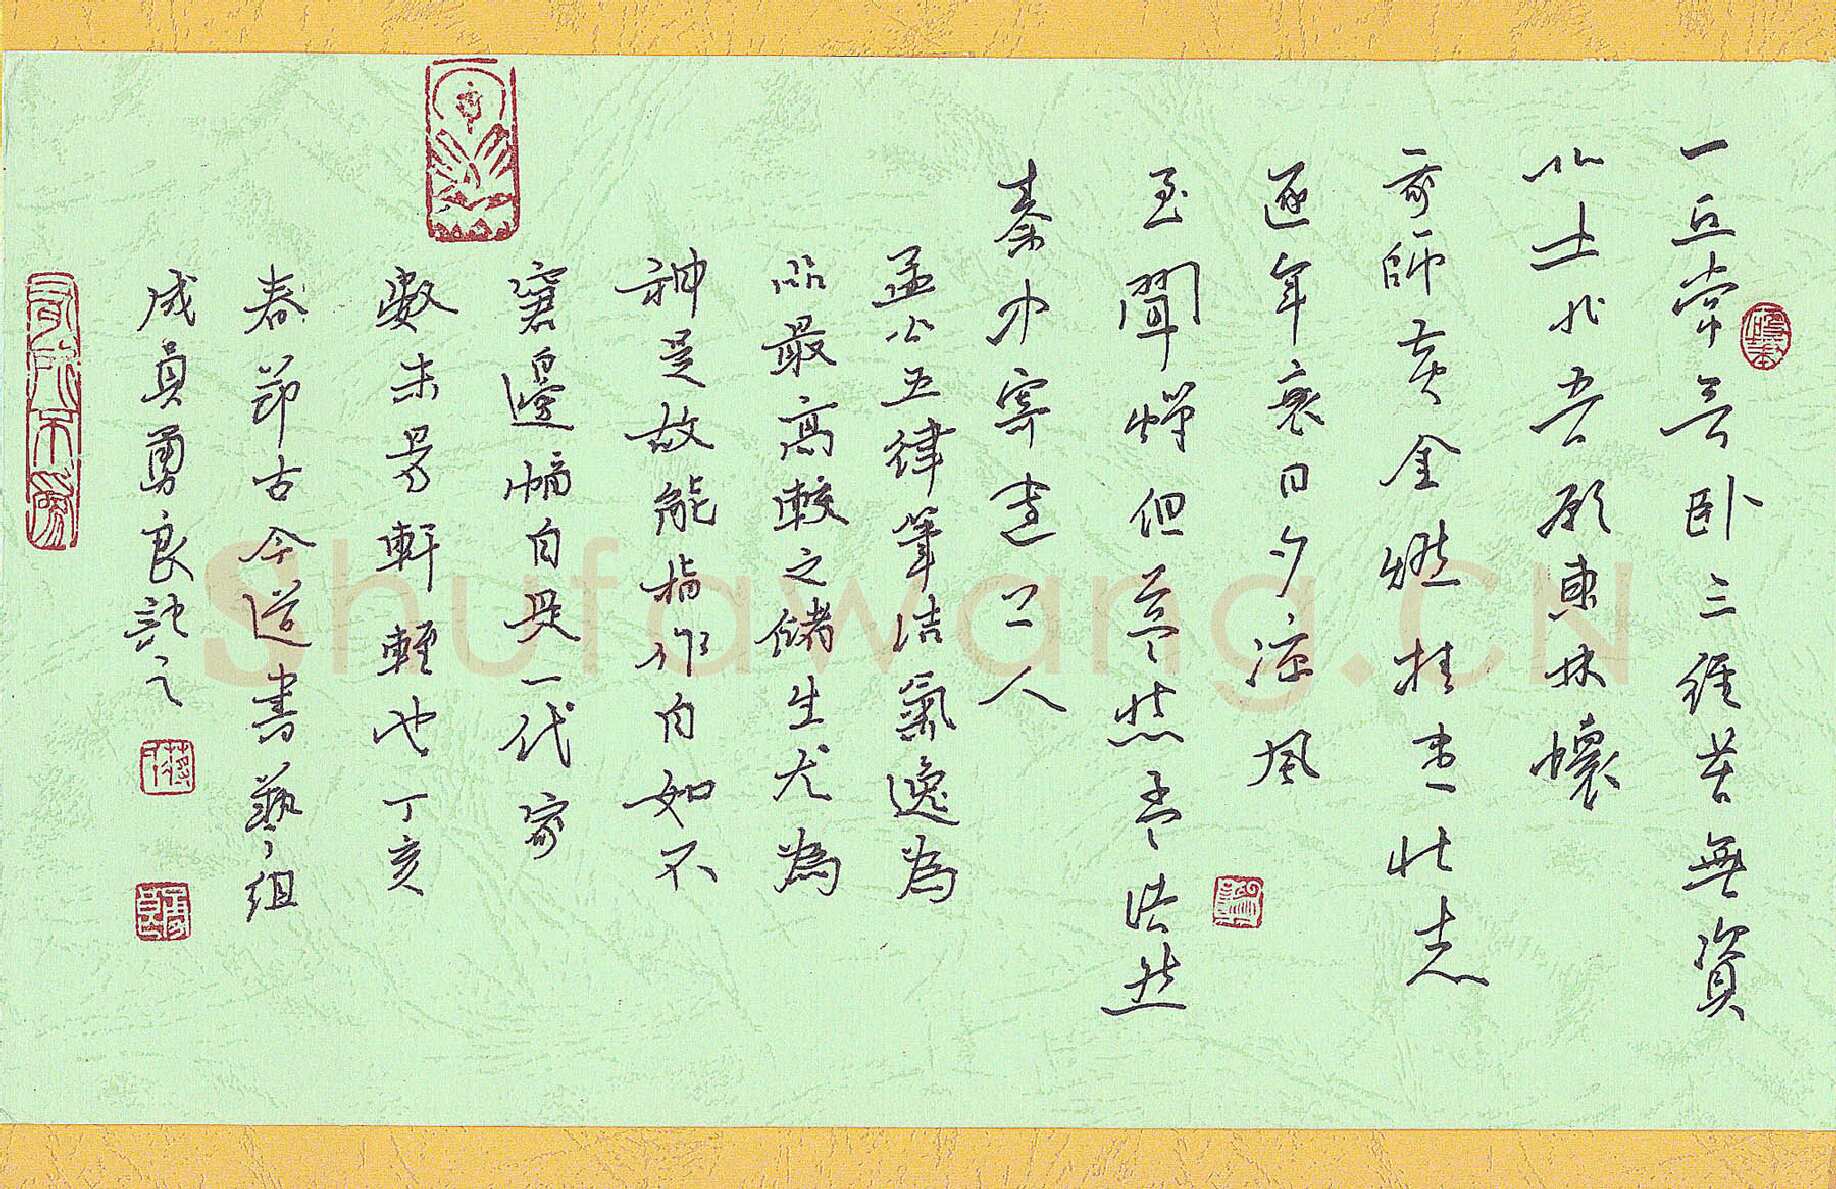 一丘常欲卧三徑苦無資
北土非吾願東林懷
我師黃金燃桂盡壯志
逐年衰日夕涼風
至聞蟬但益悲孟浩然
秦中寄遠上人
孟公五律筆洁氣逸為
品最高較之儲生尤為
神足故能揮作自如不
窘邊幅自是一代家
數未易軒輊也丁亥
春節古今道書藝組
成員勇良記之
有所不為
Shufawang.CN